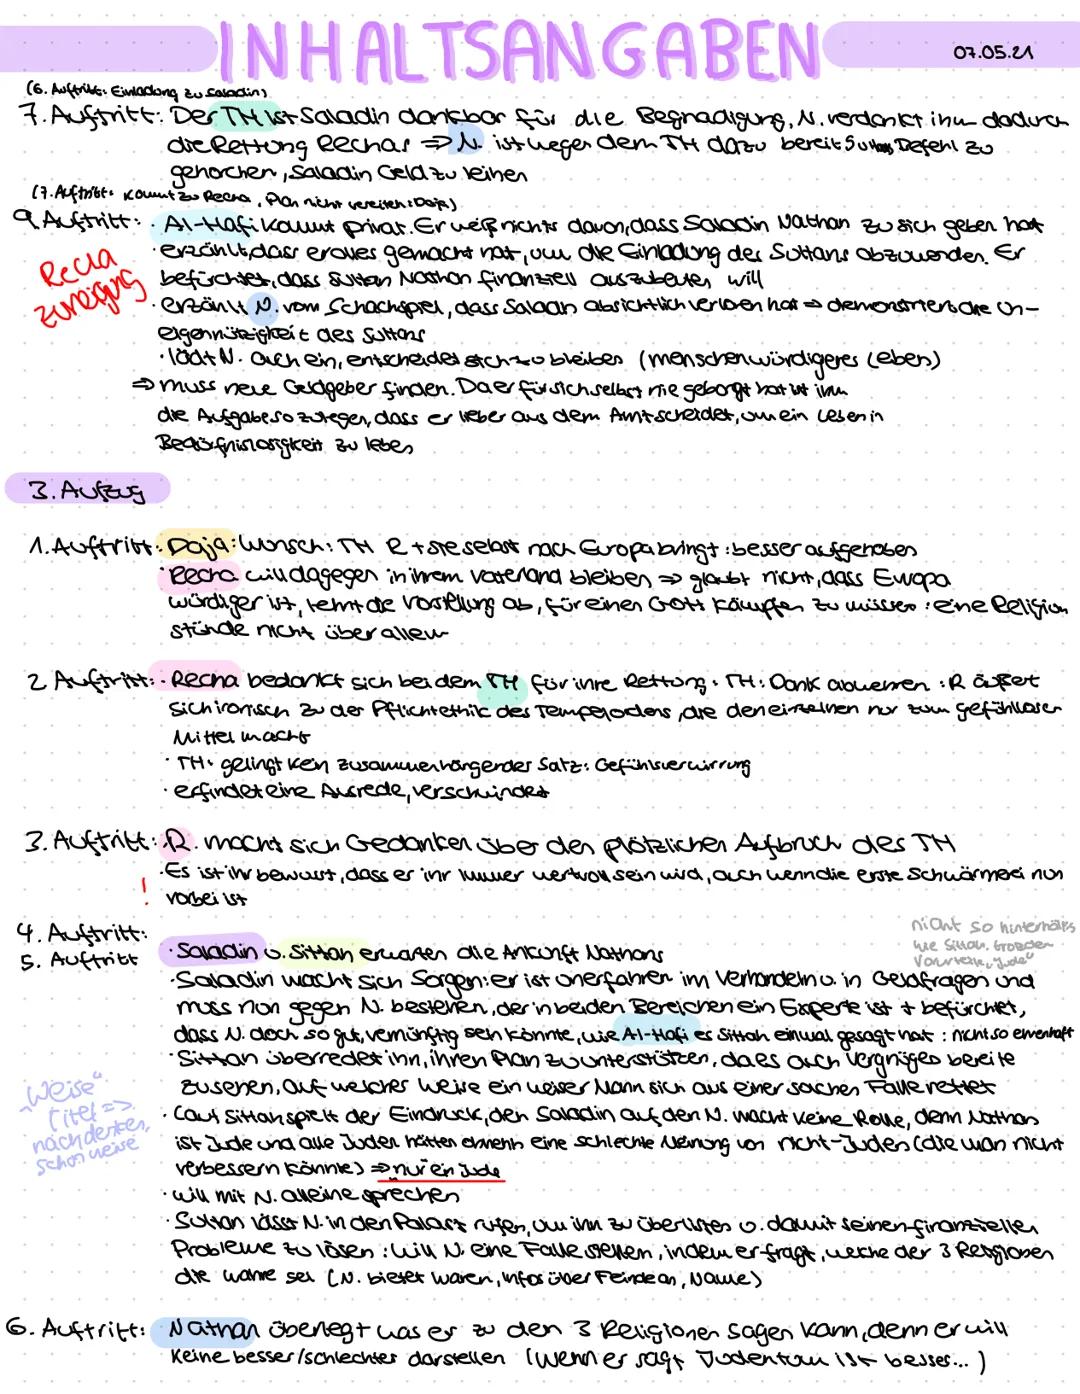 INHALTSANGABEN
07.05.21
(6. Auftritt: Einladung zu Saladin)
7. Auftritt: Der TH ist Saladin dankbar für die Begnadigung, N. verdankt ihm dadurch
die Rettung Rechas ⇒ N. ist wegen dem TH dazu bereit Befehl zu
gehorchen, Saladin Geld zu leihen
(7. Auftritt: kommt zu Recha, Plan nicht vereiteln: Daja)
9. Auftritt: · Al-Hafi kommt privat. Er weiß nichts davon, dass Saladin Nathan zu sich geben hat
· erzählt, dass er alles gemacht hat, um die Einladung des Sultans abzuwenden. Er
befürchtet, dass Sultan Nathan finanziell ausbeuten will
Recha
zuneigung
· erzählt N. vom Schachspiel, dass Saladin absichtlich verloren hat ⇒ demonstriert die Un-
eigennützigkeit des Sultans
· lädt N. auch ein, entscheidet sich zu bleiben (menschenwürdigeres Leben)
⇒ muss neue Geldgeber finden. Da er für sich selbst nie geborgt hat ist ihm
die Aufgabe so zuwider, dass er lieber aus dem Amt scheidet, um ein Leben in
Bedürfnislosigkeit zu leben
3. Aufzug
1. Auftritt: Daja: Wunsch: TH R + sie selbst nach Europa bringt: besser aufgehoben
· Recha will dagegen in ihrem Vaterland bleiben ⇒ glaubt nicht, dass Europa
würdiger ist, lehnt die Vorstellung ab, für einen Gott kämpfen zu müssen: eine Religion
stünde nicht über allem
2 Auftritt: · Recha bedankt sich bei dem TH für ihre Rettung. TH: Dank abwehren: R äußert
sich ironisch zu der Pflichtethik des Tempelordens, die den einzelnen nur zum gefühllosen
Mittel macht
· TH: gelingt kein zusammenhängender Satz: Gefühlsverwirrung
· erfindet eine Ausrede, verschwindet
3. Auftritt: · R. macht sich Gedanken über den plötzlichen Aufbruch des TH
! · Es ist ihr bewusst, dass er ihr immer wertvoll sein wird, auch wenn die erste Schwärmerei nun
vorbei ist
4. Auftritt:
5. Auftritt
· Saladin u. Sittah erwarten die Ankunft Nathans
nicht so hinterhältig
wie Sittah.
Vorurteile „Jude“
· Saladin macht sich Sorgen: er ist unerfahren im Verhandeln u. in Geldfragen und
muss nun gegen N. bestehen, der in beiden Bereichen ein Experte ist + befürchtet,
dass N. doch so gut, vernünftig sein könnte, wie Al-Hafi es Sittah einmal gesagt hat: nicht so ehrenhaft
· Sittah überredet ihn, ihren Plan zu unterstützen, da es auch Vergnügen bereite
zusehen, auf welcher Weise ein weiser Mann sich aus einer solchen Falle rettet
„Weise“
Titel =>
nachdenken,
schon weise
· Laut Sittah spielt der Eindruck, den Saladin auf den N. macht keine Rolle, denn Nathan
ist Jude und alle Juden hätten ohnehin eine schlechte Meinung von nicht-Juden (die man nicht
verbessern könnte) ⇒ „nur“ ein Jude
· will mit N. alleine sprechen
· Sultan lässt N. in den Palast rufen, um ihn zu überlisten u. damit seinen finanziellen
Probleme zu lösen: will N. eine Falle stellen, indem er fragt, welche der 3 Religionen
die wahre sei (N. bietet Waren, Infos über Feinde an, Name)
6. Auftritt: Nathan überlegt was er zu den 3 Religionen sagen kann, denn er will
keine besser/schlechter darstellen (wenn er sagt Judentum ist besser...)